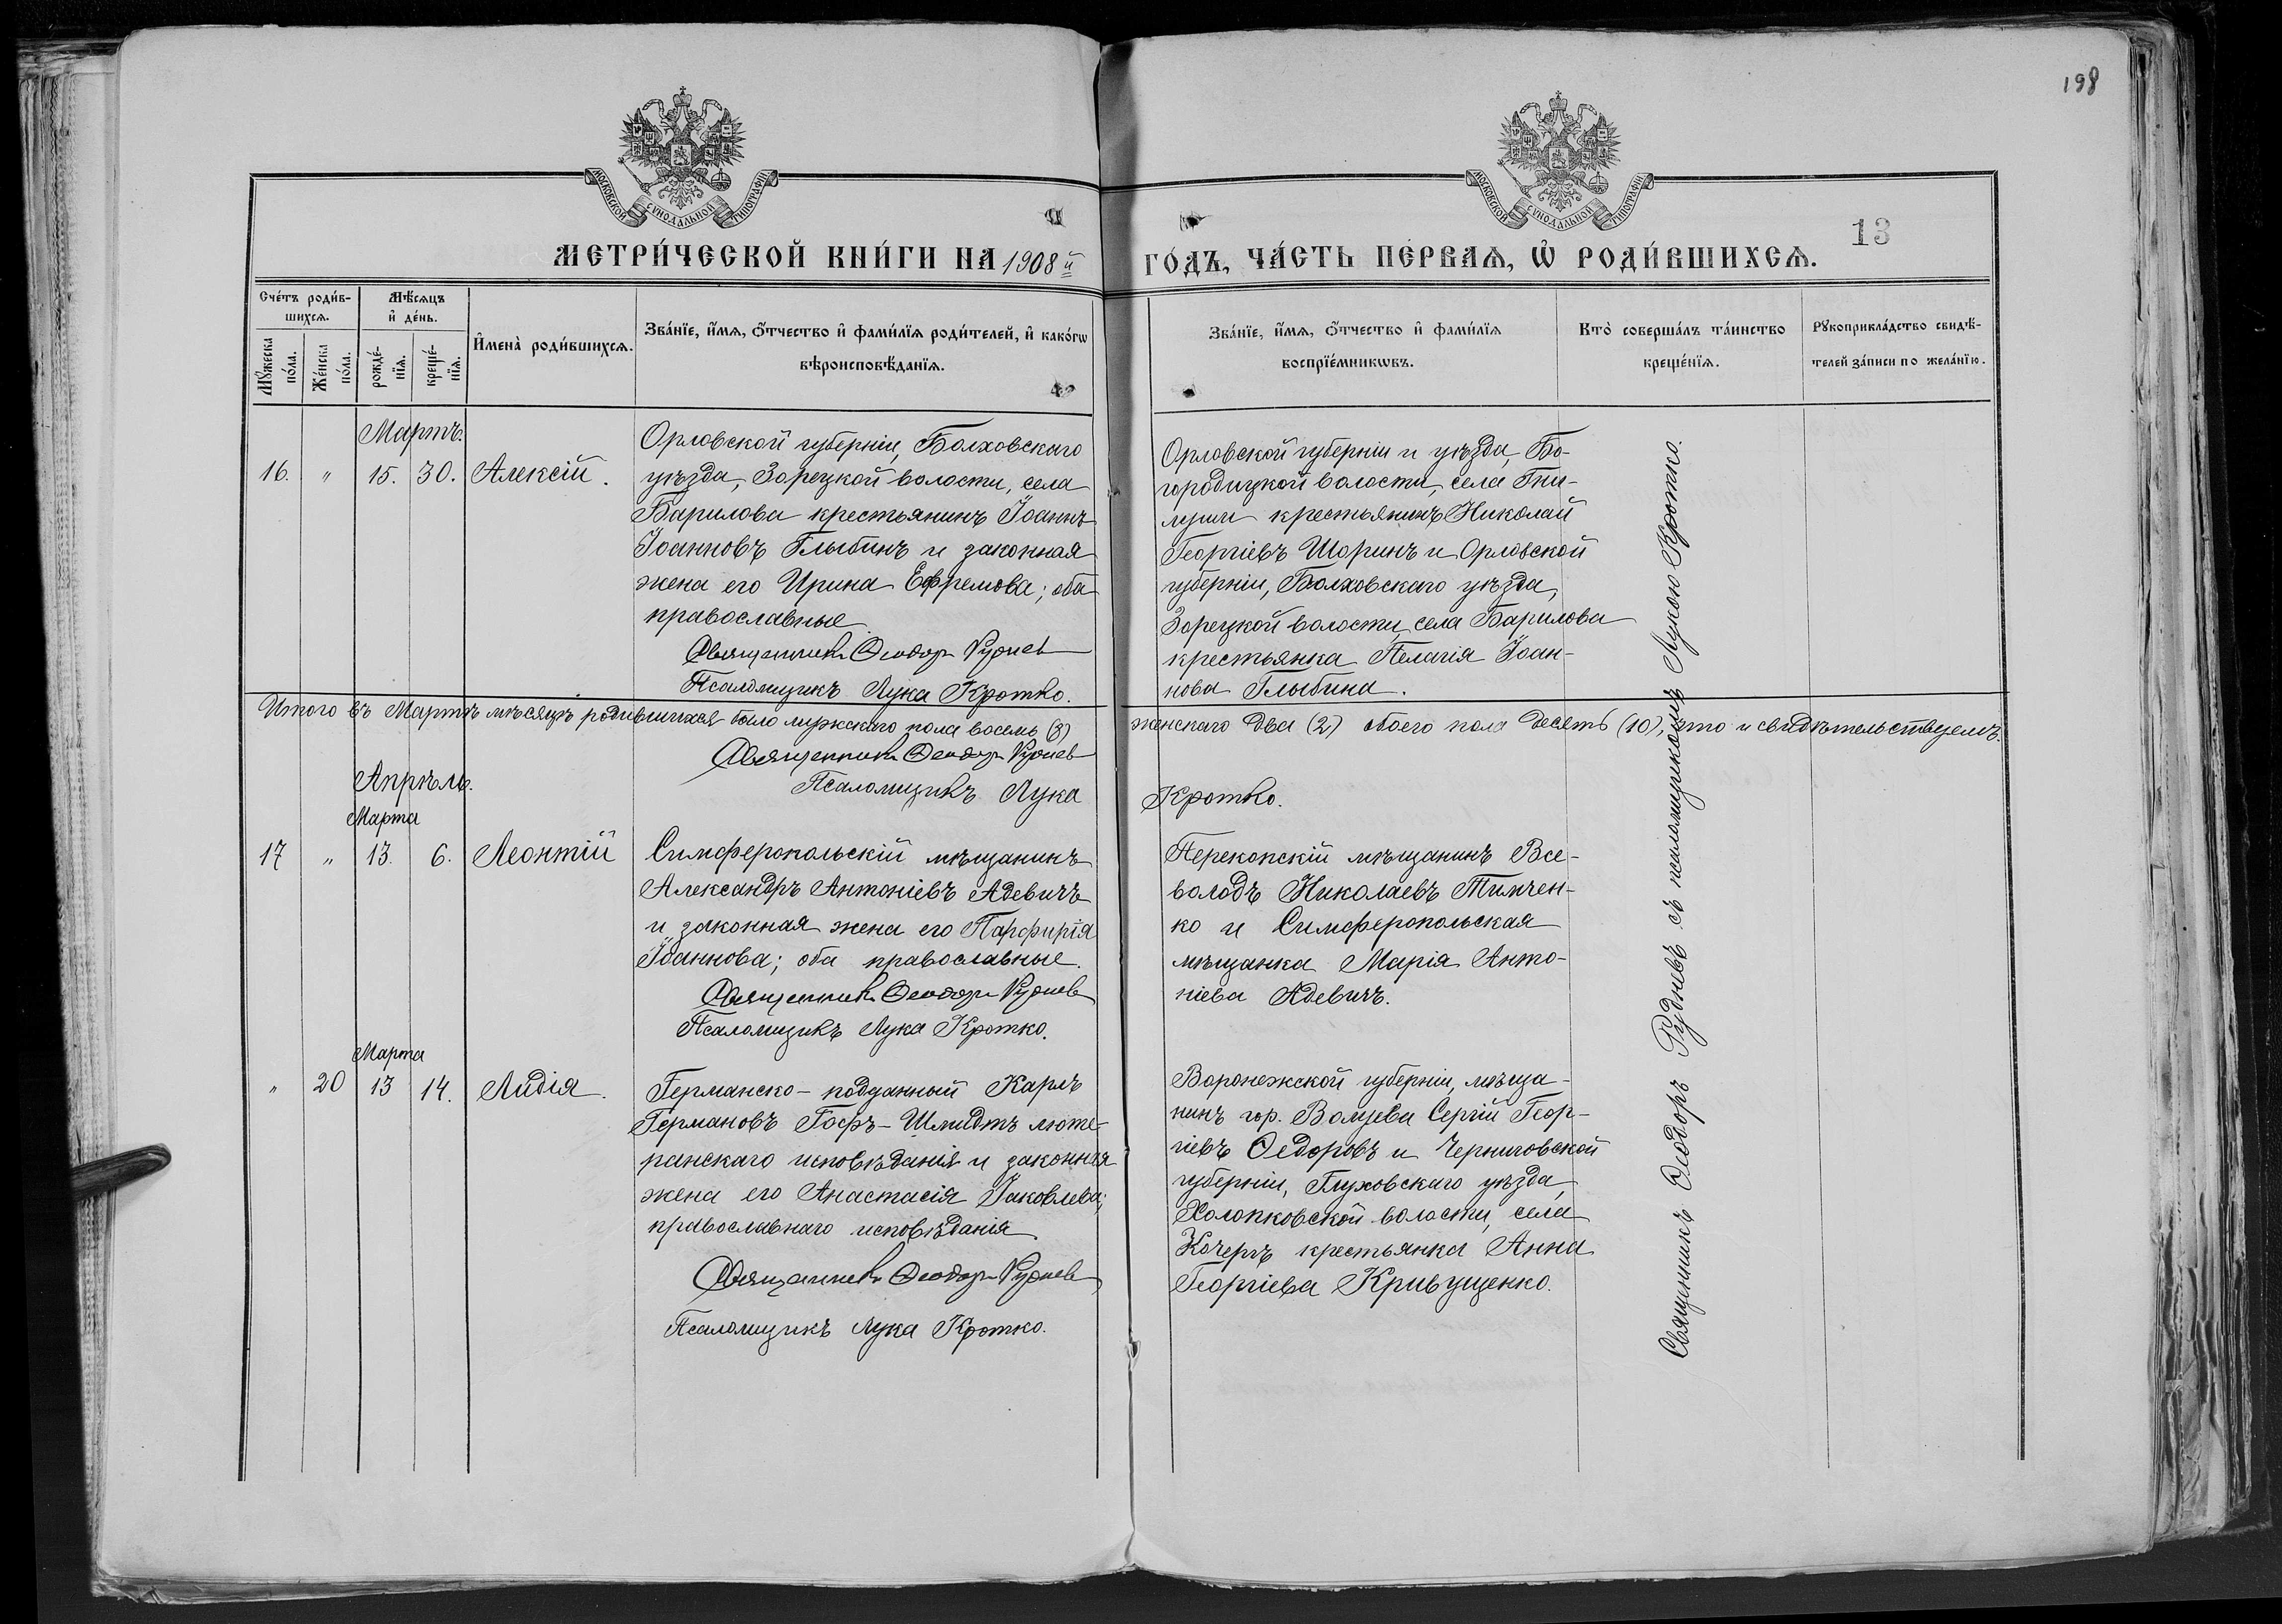 198
МОСКОВСКОЙ СУНОДАЛЬНОЙ ТИПОГРАФІИ
МОСКОВСКОЙ СУНОДАЛЬНОЙ ТИПОГРАФІИ
13
МЕТРИ́ЧЕСКОЙ КНИ́ГИ НА 1908 й
ГО́ДЪ, ЧА́СТЬ ПЕ́РВАѦ, Ѡ҆ РОДИ́ВШИХСѦ.
Сче́тъ роди́в-
шихсѧ.
Мѣ́сѧцъ
и҆ де́нь.
Мꙋ́жеска по́ла.
Же́нска по́ла.
рожде́-
нїѧ.
креще́-
нїѧ.
И҆мена̀ роди́вшихсѧ.
Зва́нїе, и҆́мѧ, ѻ҆́тчество и҆ фами́лїѧ роди́телей, и҆ како́гѡ
вѣроисповѣ́данїѧ.
Зва́нїе, и҆́мѧ, ѻ҆́тчество и҆ фами́лїѧ
воспрїе́мникѡвъ.
Кто̀ соверша́лъ та́инство
креще́нїѧ.
Рꙋкоприкла́дство свидѣ́-
телей за́писи по жела́нїю.
Мартъ.
16. " 15. 30. Алексій.
Орловской губерніи, Болховскаго
уѣзда, Зарецкой волости, села
Барилова крестьянинъ Іоаннъ
Іоанновъ Глыбинъ и законная
жена его Ирина Ефремова; оба
православные.
Священникъ Ѳеодоръ Руднев
Псаломщикъ Лука Кротко.
Орловской губерніи и уѣзда, Бо-
городицкой волости, села Гни-
луши крестьянинъ Николай
Георгіевъ Шоринъ и Орловской
губерніи, Болховскаго уѣзда,
Зарецкой волости, села Барилова
крестьянка Пелагія Іоан-
нова Глыбина.
Священникъ Ѳеодоръ Рудневъ съ псаломщикомъ Лукою Кротко.
Итого въ Мартѣ мѣсяцѣ родившихся было мужскаго пола восемь (8) женскаго два (2) обоего пола десять (10), что и свидѣтельствуемъ.
Священникъ Ѳеодоръ Руднев
Псаломщикъ Лука Кротко.
Апрѣль.
Марта
17 " 13. 6. Леонтій
Симферопольскій мѣщанинъ
Александръ Антоніевъ Адевичъ
и законная жена его Парфирія
Іоаннова; оба православные.
Священникъ Ѳеодоръ Руднев
Псаломщикъ Лука Кротко.
Перекопскій мѣщанинъ Все-
володъ Николаевъ Тимчен-
ко и Симферопольская
мѣщанка Марія Анто-
ніева Адевичъ.
Марта
" 20 13 14. Лидія.
Германско-подданный Карлъ
Германовъ Гофъ-Шмидтъ люте-
ранскаго исповѣданія и законная
жена его Анастасія Іаковлева;
православнаго исповѣданія.
Священникъ Ѳеодоръ Руднев
Псаломщикъ Лука Кротко.
Воронежской губерніи, мѣща-
нинъ гор. Сергій Геор-
гіевъ Ѳедоровъ и Черниговской
губерніи, Глуховскаго уѣзда,
Холопковской волости, села
крестьянка Анна
Георгіева Кривущенко.